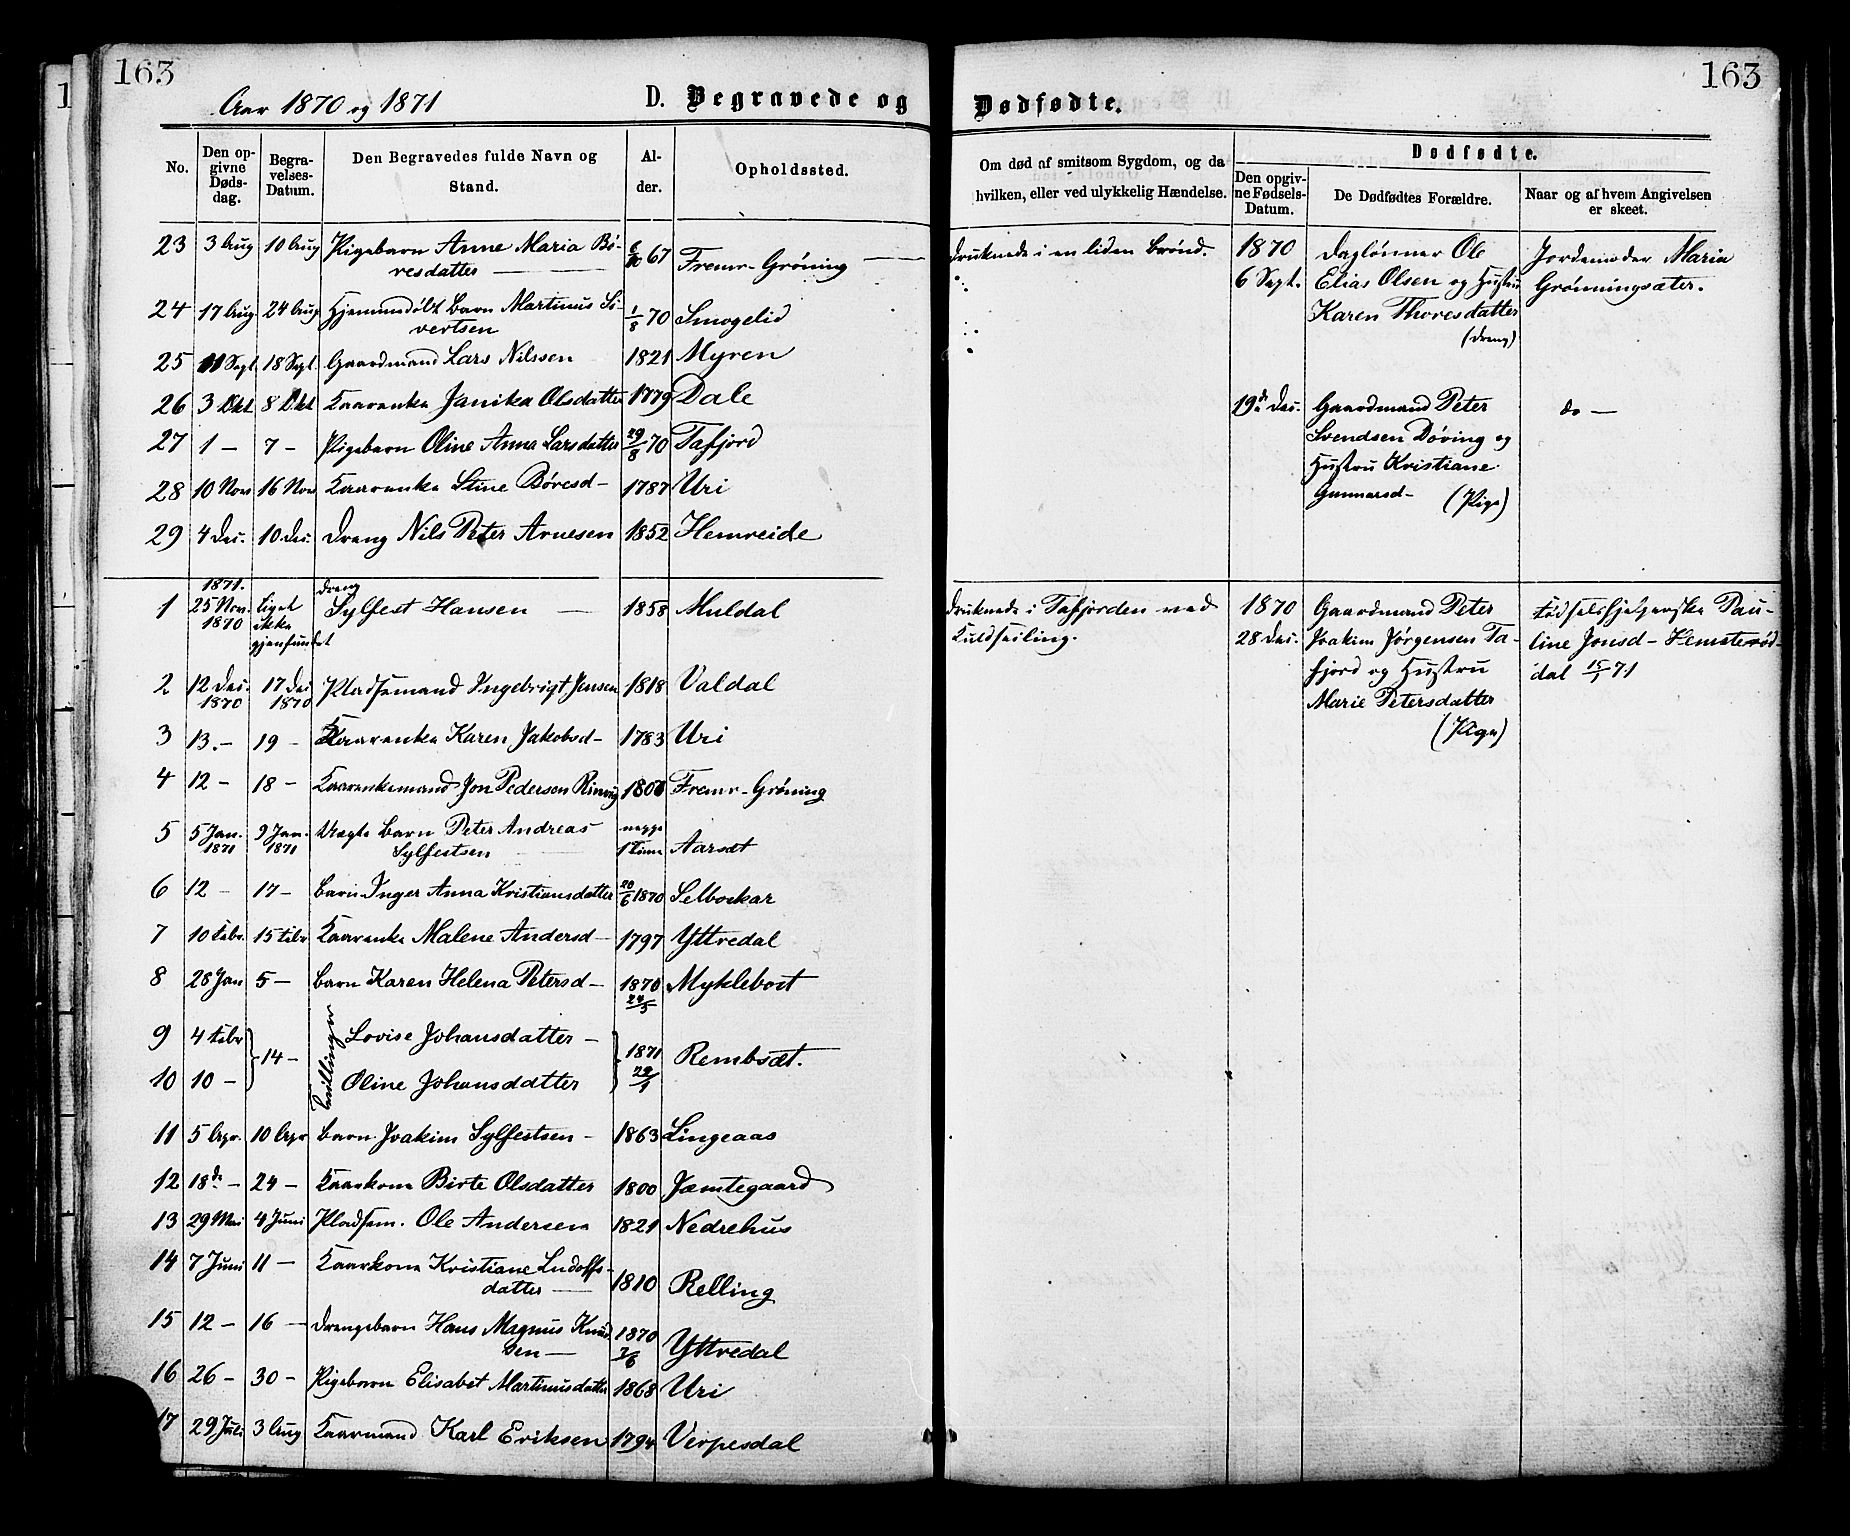 163
Aar 1870 og 1871
D. Begravede og
No.
Den opgivne Dødsdag.
Begravelses-Datum.
Den Begravedes fulde Navn og Stand.
Alder.
Opholdssted.
23 3 Aug 10 Aug Pigebarn Anne Maria Bø- 6/10 67 Fremr-Grøning
resdatter
24 17 Aug 24 Aug Hjemmedøbt Barn Martinus Si- 1/8 70 Smogelid
vertsen
25 11 Sept 18 Sept. Gaardmand Lars Nilssen 1821 Myren
26 3 Okt 8 Okt Kaarenke Janika Olsdatter 1779 Dale
27 1 - 7 - Pigebarn Oline Anna Larsdatter 29/8 70 Tafjord
28 10 Nov 16 Nov Kaarenke Stine Børesd- 1787 Uri
29 4 Des. 10 Des. Dreng Nils Peter Arnesen 1852 Hemreide
1871.
1 25 Nov. 1870 Liget ikke gjenfundet Dreng Sylfest Hansen 1858 Muldal
2 12 Des. 1870 17 Des 1870 Pladsemand Ingebrigt Jensen 1818 Valdal
3 13. - 19 - Kaarenke Karen Jakobsd- 1783 Uri
4 12 - 18 - Kaarenkemand Jon Pedersen 1801 Fremr-Grøning
5 5 Jan. 1871 9 Jan. 1871 Uægte Barn Peter Andreas neppe 1 Time Aarsæt
Sylfestsen
6 12 - 17 - Barn Inger Anna Kristiansdatter 20/6 1870 Selboskar
7 10 Febr. 15 Febr Kaarenke Malene Andersd- 1797 Yttredal
8 28 Jan 5 - Barn Karen Helena Petersd- 1870 24/5 Myklebost
9 4 Febr 14 - Tvillinger Lovise Johansdatter - 1871 29/1 Rembsæt.
10 10 - Oline Johansdatter
11 5 Apr. 10 Apr Barn Joakim Sylfestsen - 1863 Lingeaas
12 18de - 24 - Kaarkone Birte Olsdatter 1800 Jæmtegaard
13 29 Mai 4 Juni Pladsem. Ole Andersen 1821 Nedrehus
14 7 Juni 11 - Kaarkone Kristiane Ludolfs- 1810 Relling
datter
15 12 - 16 - Drengebarn Hans Magnus Knud- 1870 3/6 Yttredal
sen -
16 26 - 30 - Pigebarn Elisabet Martinusdatter 1868 Uri
17 29 Juli 3 Aug Kaarmand Karl Eriksen 1794 Verpesdal
163
Dødfødte.
Om død af smitsom Sygdom, og da hvilken, eller ved ulykkelig Hændelse.
Dødfødte.
Den opgivne Fødsels-Datum.
De Dødfødtes Forældre.
Naar og af hvem Angivelsen er skeet.
druknede i en liden Brønd.
1870 Daglønner Ole Jordemoder Maria
6 Sept. Elias Olsen og Hustru Grønningsæter.
Karen Thoresdatter
(Dreng)
19de Des. Gaardmand Peter do -
Svendsen Døving og
Hustru Kristiane
Gunnarsd- (Pige)
druknede i Tafjorden ved
Kuldseiling.
1870 Gaardmand Peter Fødselshjelperske Pau-
28 Des. Joakim Jørgensen Ta- line Jonsd-
fjord og Hustru dal 15/1 71
Marie Petersdatter
(Pige)